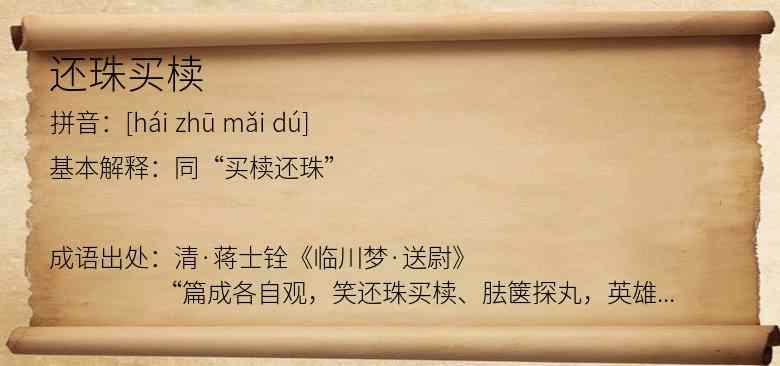 还珠买椟
拼音：[hái zhū mǎi dú]
基本解释：同“买椟还珠”
成语出处：清·蒋士铨《临川梦·送尉》
“篇成各自观，笑还珠买椟、胠箧探丸，英雄...